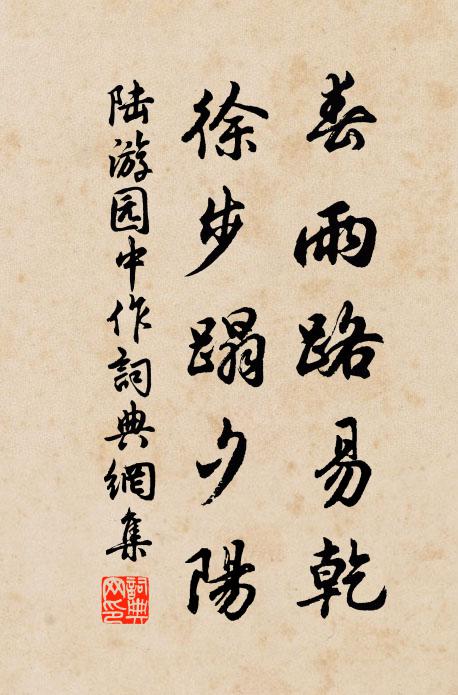 春雨路易乾
徐步蹋夕陽
陆游园中作詞典網集
詞典网印